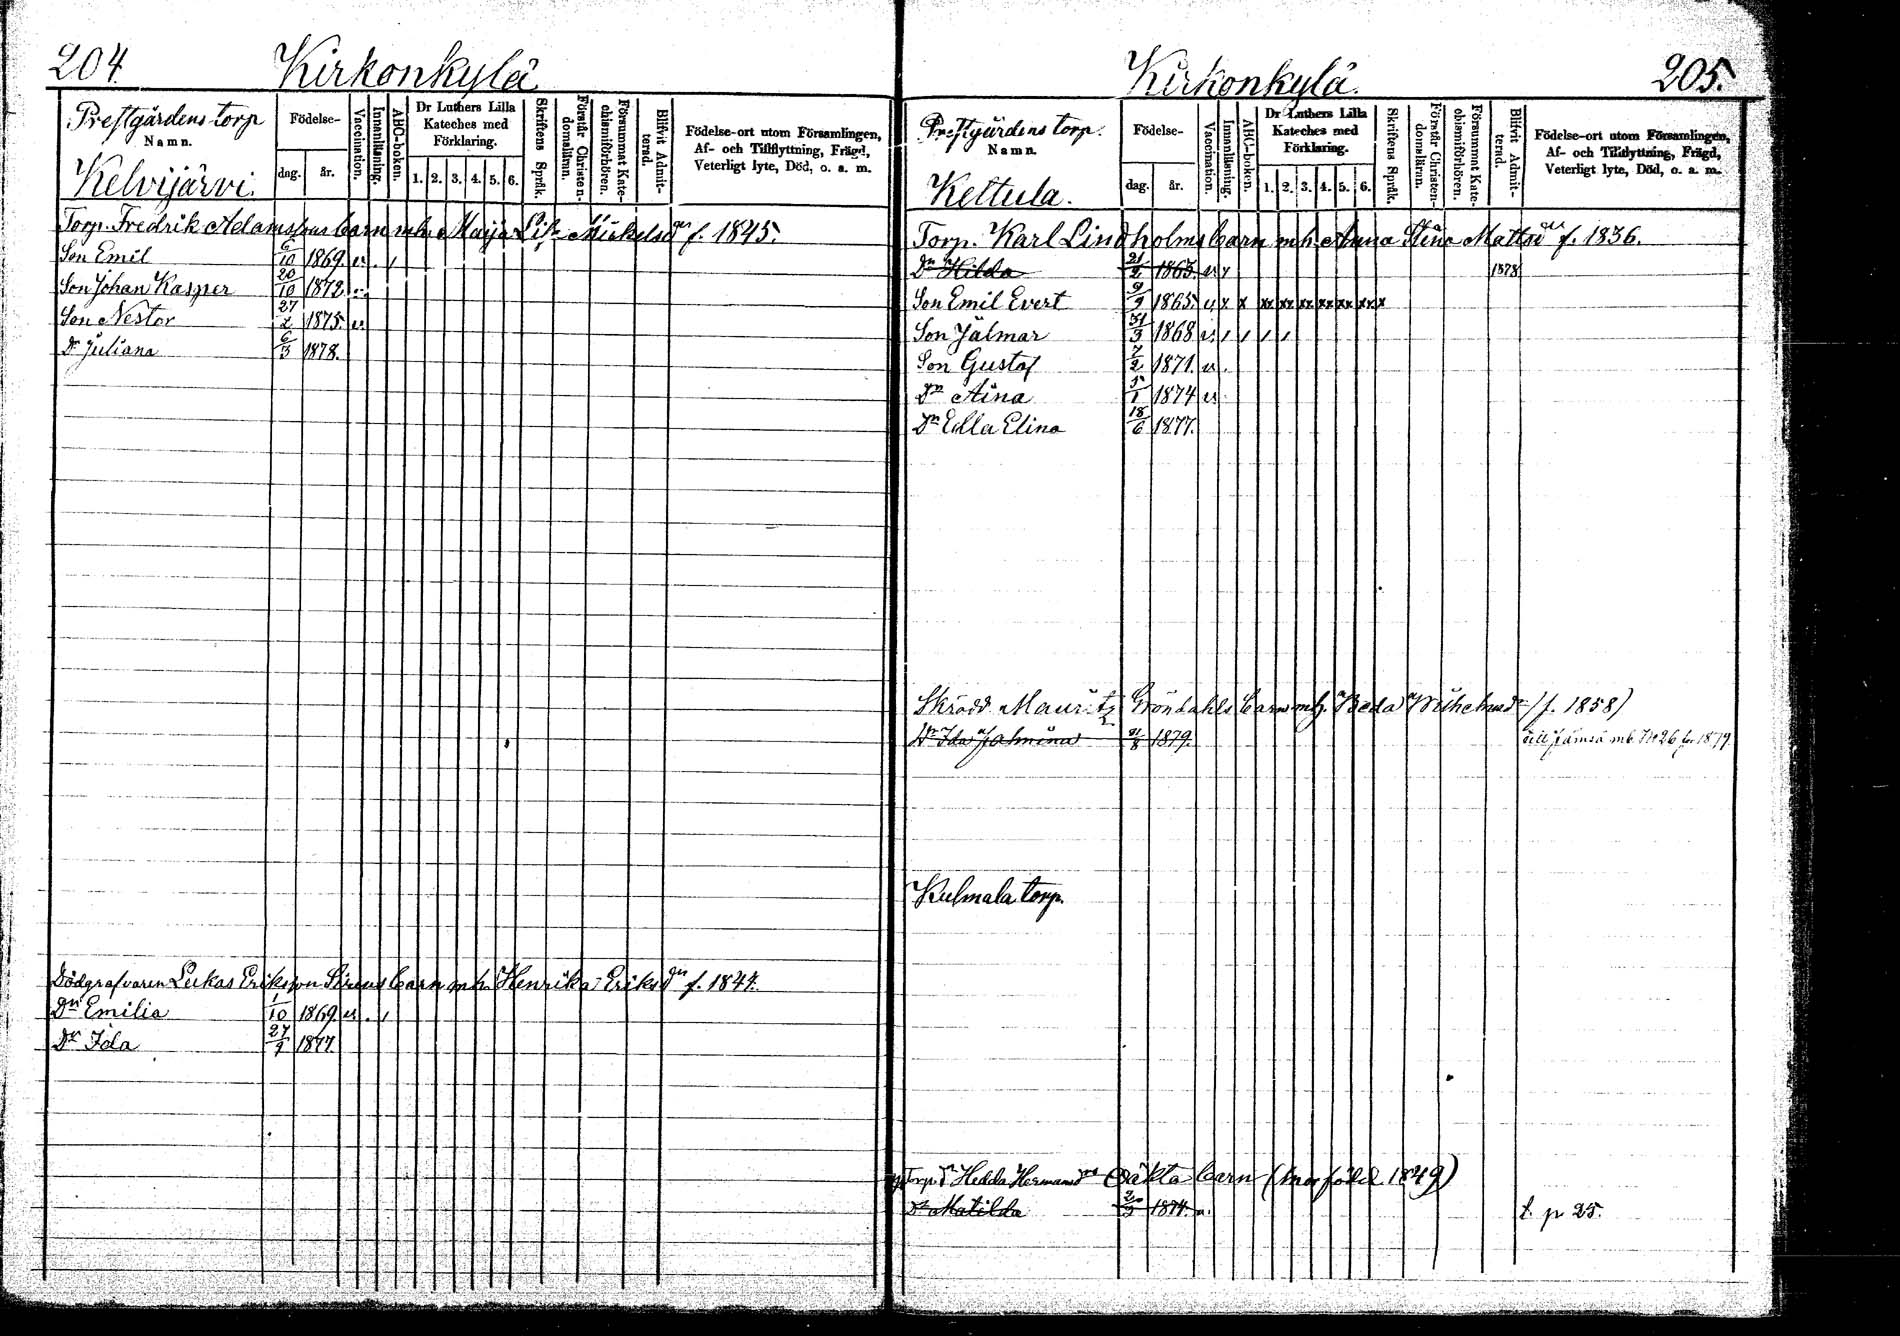 204.
Kirkonkylä
Prestgårdens torp
Namn.
Kelvijärvi.
Födelse-
dag.
år.
Vaccination.
Innanläsning.
ABC-boken.
Dr Luthers Lilla
Kateches med
Förklaring.
1. 2. 3. 4. 5. 6.
Skriftens Språk.
Förstår Christen-
domslärun.
Försummat Kate-
chismiförhören.
Blifvit Admit-
terad.
Födelse-ort utom Församlingen,
Af- och Tillflyttning, Frägd,
Veterligt lyte, Död, o. a. m.
Torp. Fredrik Adamssons barn m. h. Maija Lisa Mickelsdr f. 1845.
Son Emil 6/10 1869. v.
Son Johan Kasper 20/10 1872
Son Nestor 27/2 1875. v.
Dr Juliana 6/3 1878.
Dödgrafvaren Lukas Eriksson Sirens barn m. h. Henrika Eriksdr f. 1844.
Dr Emilia 1/10 1869. v.
Dr Ida 27/9 1877.
Kirkonkylä.
205.
Prestgårdens torp.
Namn.
Kettula.
Födelse-
dag.
år.
Vaccination.
Innanläsning.
ABC-boken.
Dr Luthers Lilla
Kateches med
Förklaring.
1. 2. 3. 4. 5. 6.
Skriftens Språk.
Förstår Christen-
domsläran.
Försummat Kate-
chismiförhören.
Blifvit Admit-
terad.
Födelse-ort utom Församlingen,
Af- och Tillflyttning, Frägd,
Veterligt lyte, Död, o. a. m.
Torp. Karl Lindholms barn m. h. Anna Stina Mattsdr f. 1836.
Dr Hilda 21/2 1863. v. x 1878
Son Emil Evert 9/9 1865. v. x x xx xx xx xx xx xx x
Son Jalmar 31/3 1868 v.
Son Gustaf 7/2 1871. v.
Dr Aina 5/1 1874 v.
Dr Edla Elina 18/6 1877.
Skrädd. Mauritz Gröndahls barn m. h. Beda Wilhelmsdr (f. 1858)
Dr Ida Jalmina 21/8 1879. till Jämsä mb. No 26 för 1879
Kulmala torp.
Torp. dr Hedda Hermansdrs Oäkta barn (mor född 1849)
Dr Matilda 1874. v. t. p 25.